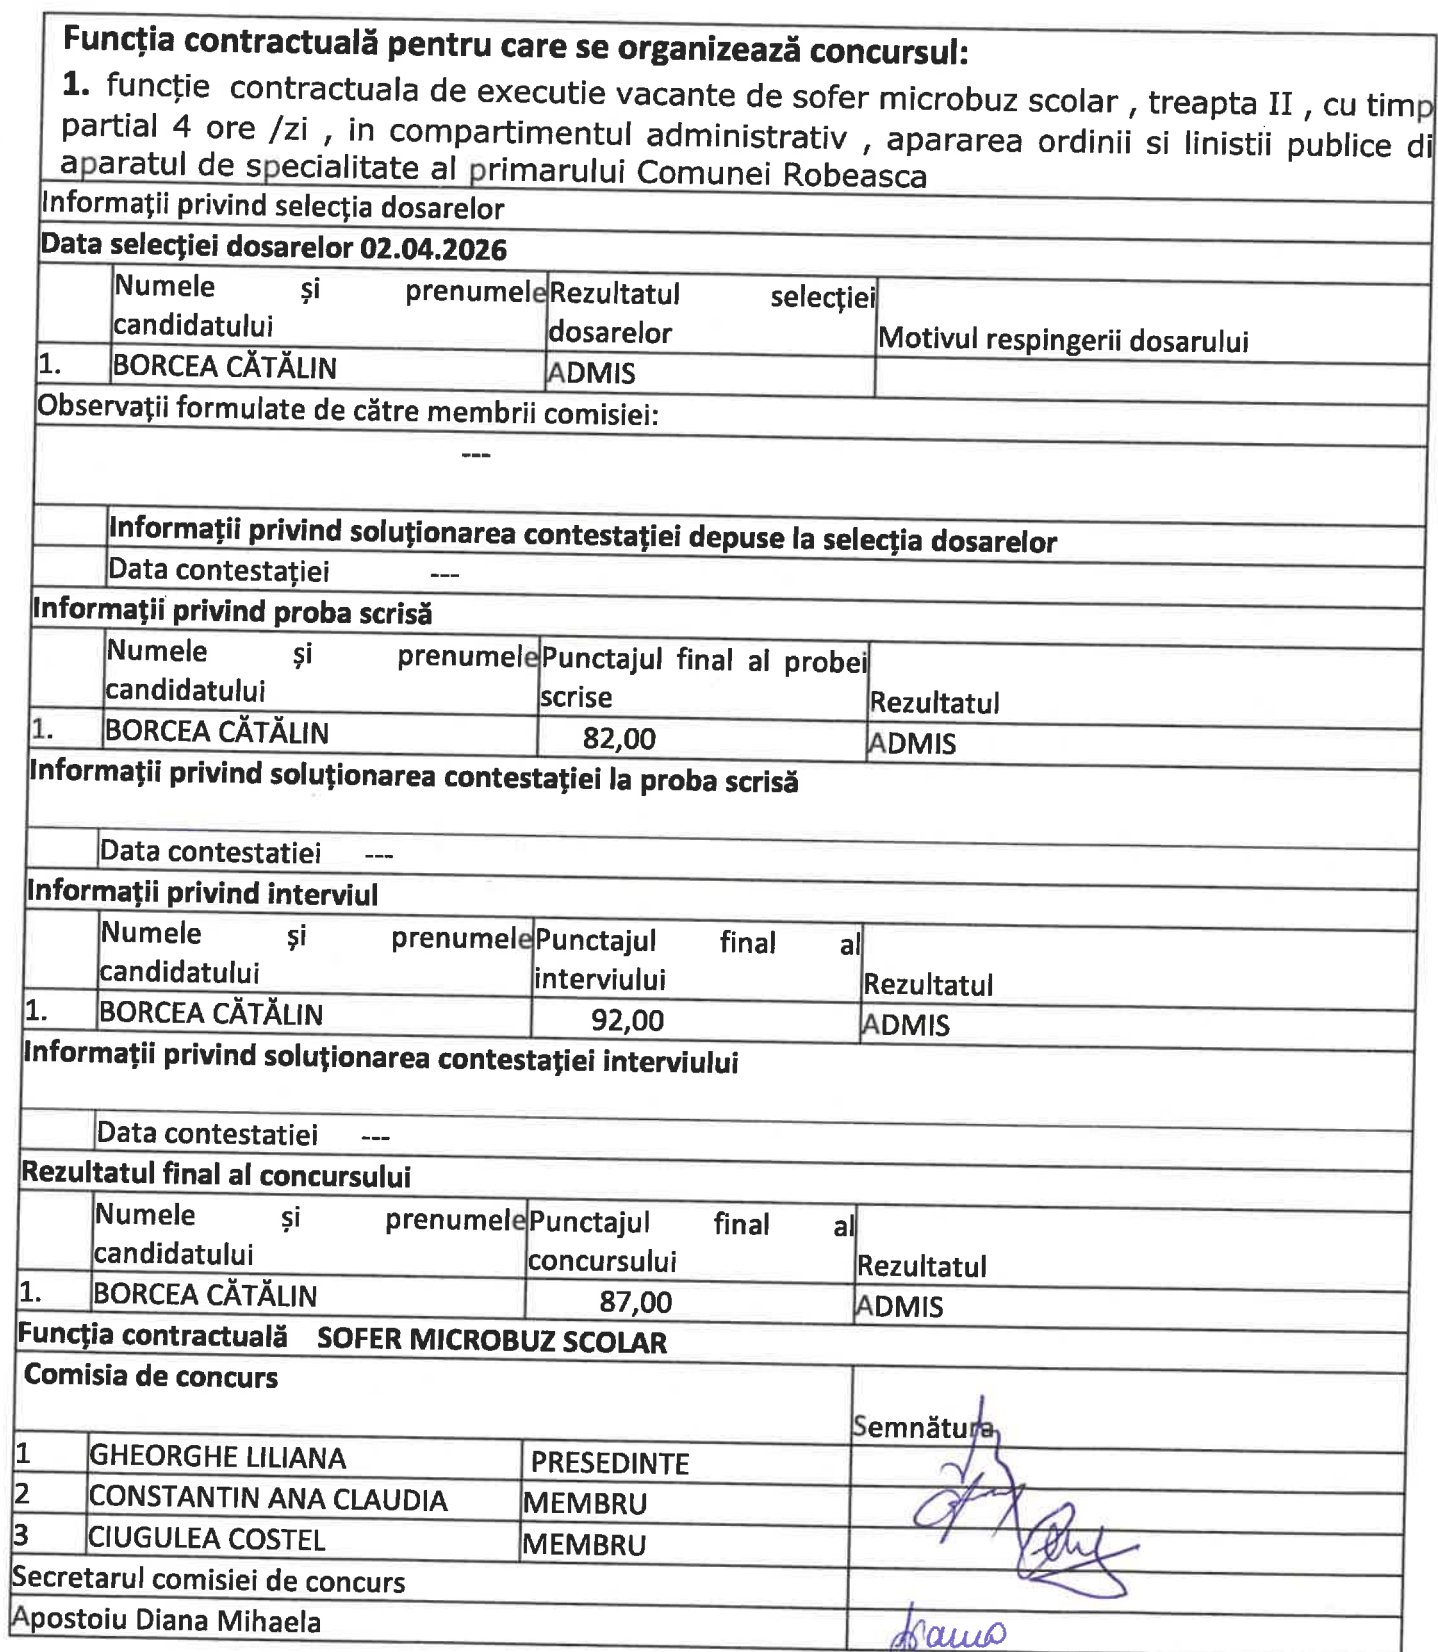 Funcția contractuală pentru care se organizează concursul:
1. funcție contractuala de executie vacante de sofer microbuz scolar , treapta II , cu timp
partial 4 ore /zi , in compartimentul administrativ , apararea ordinii si linistii publice di
aparatul de specialitate al primarului Comunei Robeasca
Informații privind selecția dosarelor
Data selecției dosarelor 02.04.2026
Numele și prenumele candidatului Rezultatul selecției dosarelor Motivul respingerii dosarului
1. BORCEA CĂTĂLIN ADMIS
Observații formulate de către membrii comisiei:
---
Informații privind soluționarea contestației depuse la selecția dosarelor
Data contestației ---
Informații privind proba scrisă
Numele și prenumele candidatului Punctajul final al probei scrise Rezultatul
1. BORCEA CĂTĂLIN 82,00 ADMIS
Informații privind soluționarea contestației la proba scrisă
Data contestatiei ---
Informații privind interviul
Numele și prenumele candidatului Punctajul final al interviului Rezultatul
1. BORCEA CĂTĂLIN 92,00 ADMIS
Informații privind soluționarea contestației interviului
Data contestatiei ---
Rezultatul final al concursului
Numele și prenumele candidatului Punctajul final al concursului Rezultatul
1. BORCEA CĂTĂLIN 87,00 ADMIS
Funcția contractuală SOFER MICROBUZ SCOLAR
Comisia de concurs Semnătura
1 GHEORGHE LILIANA PRESEDINTE
2 CONSTANTIN ANA CLAUDIA MEMBRU
3 CIUGULEA COSTEL MEMBRU
Secretarul comisiei de concurs
Apostoiu Diana Mihaela